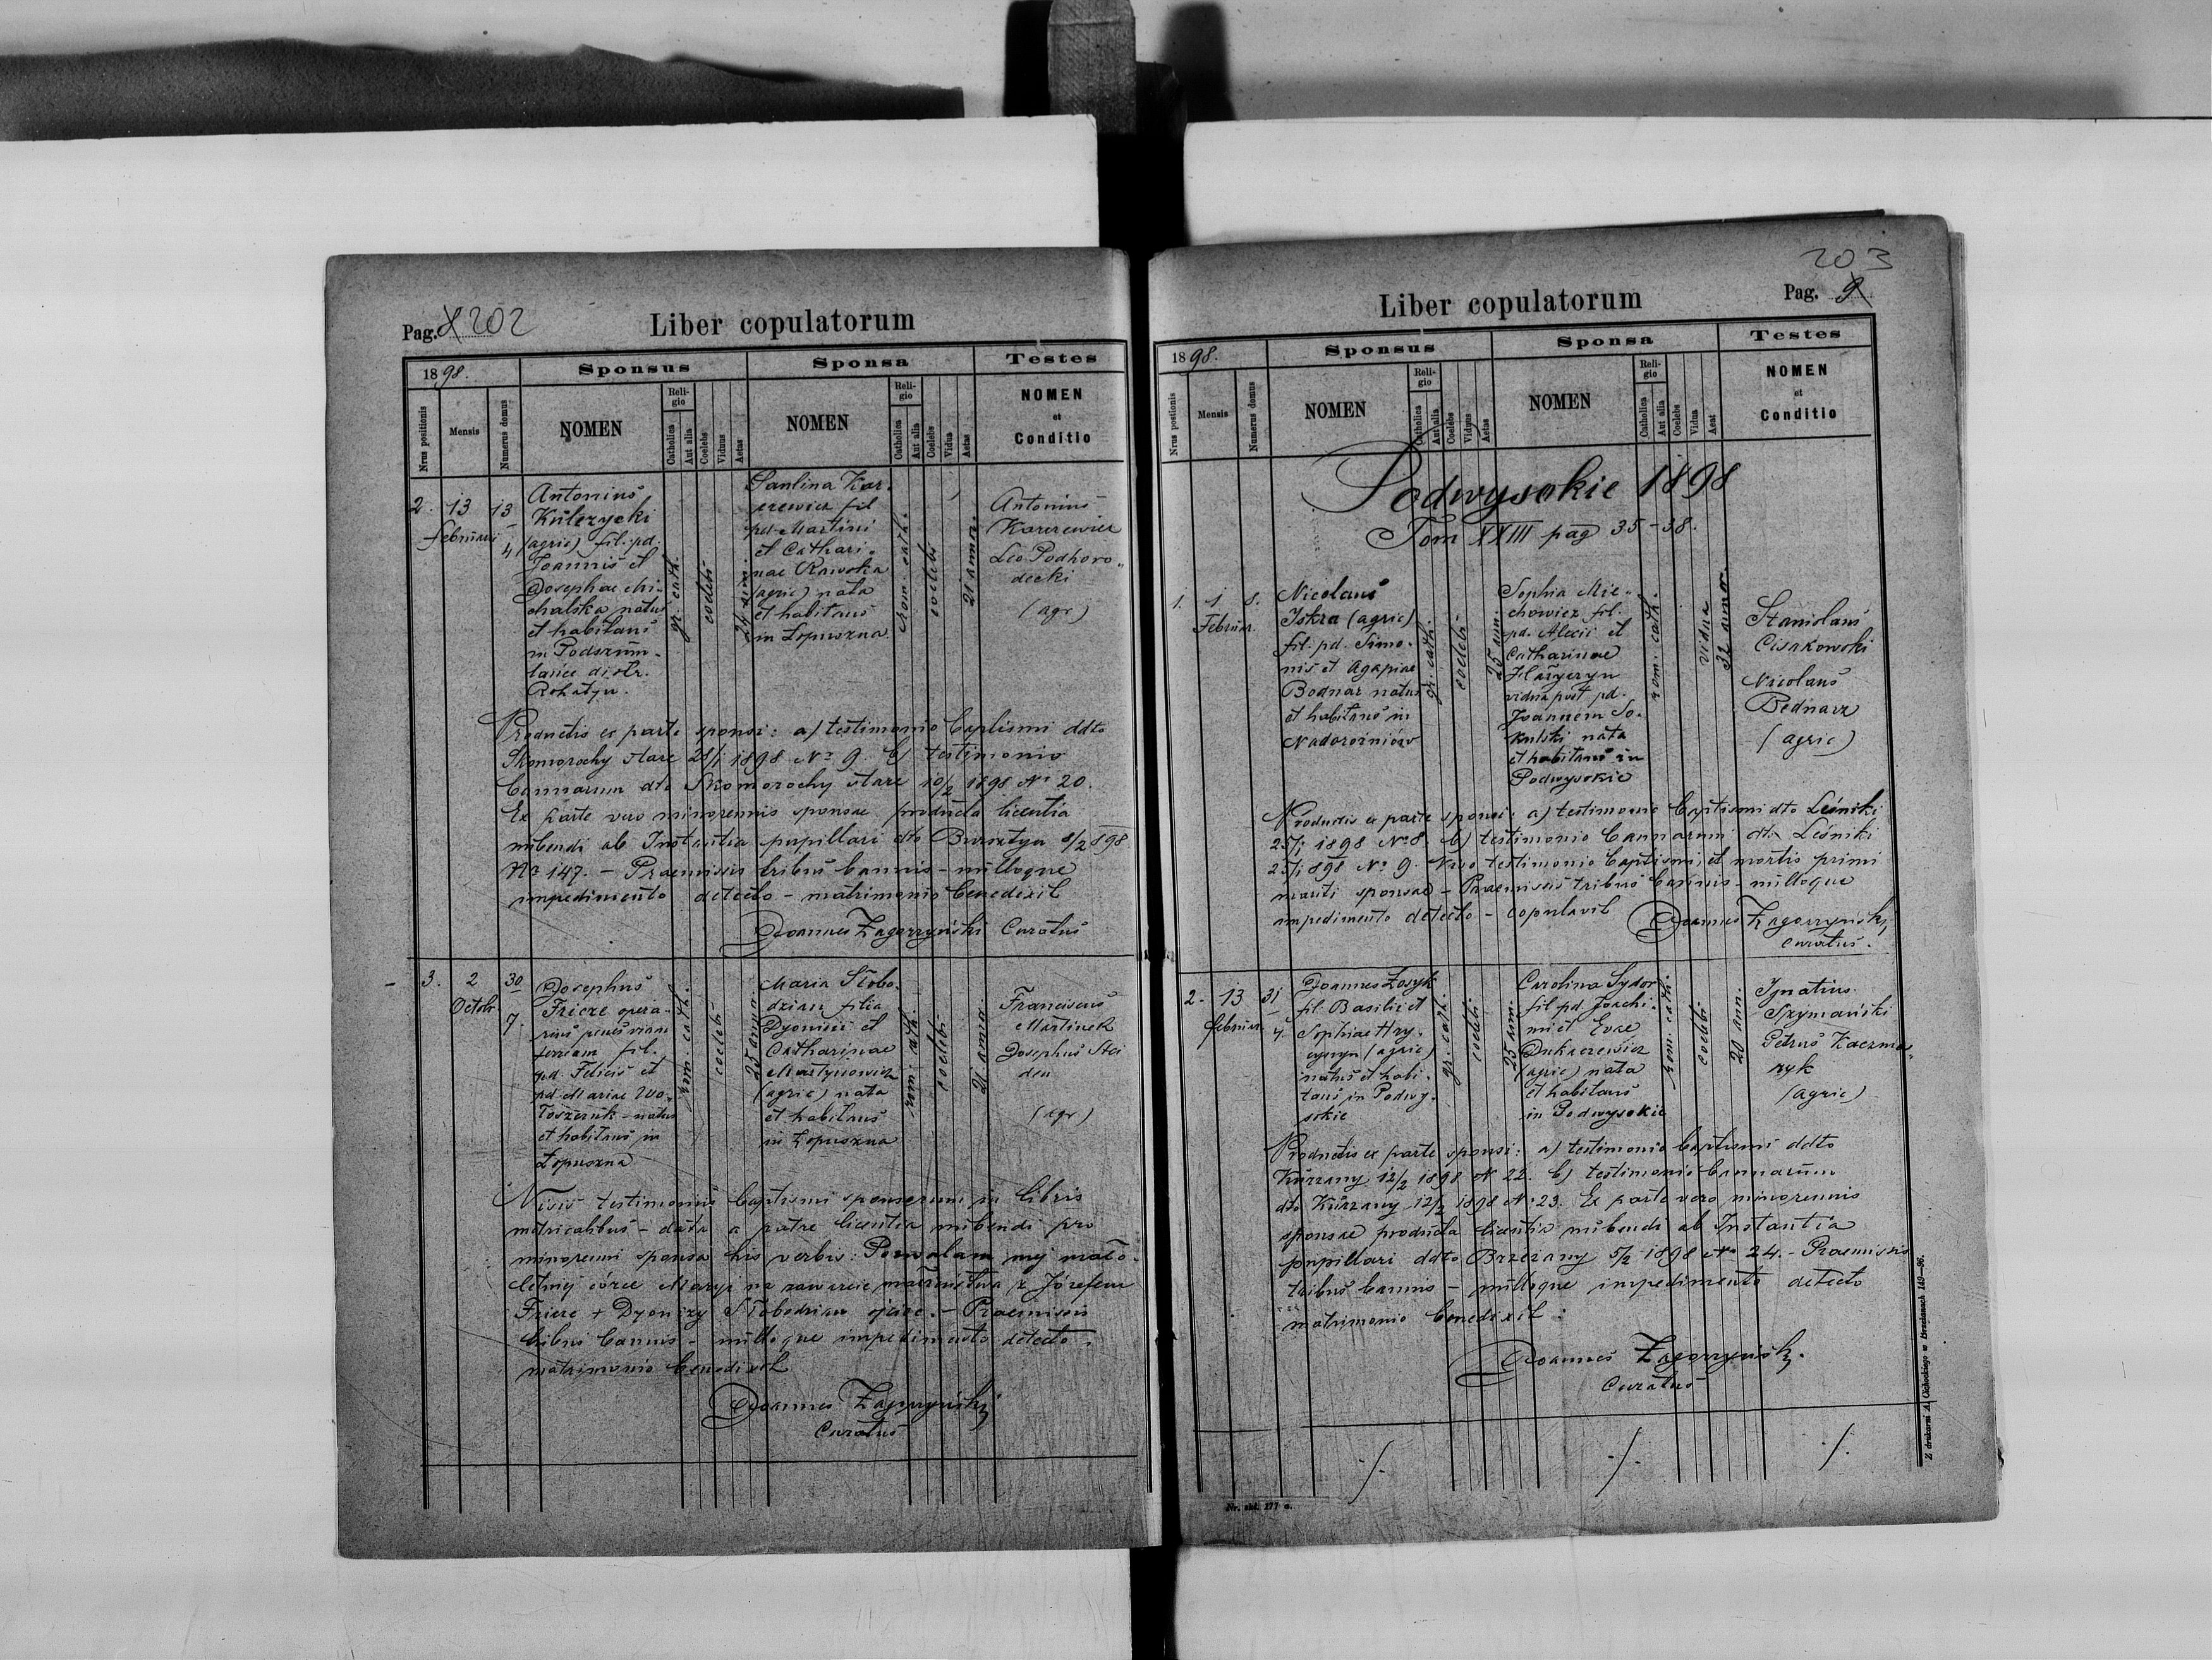 Pag. 8 202
Liber copulatorum
1898.
Sponsus
Sponsa
Testes
Nrus positionis
Mensis
Numerus domus
NOMEN
Religio
Catholica
Aut alia
Coelebs
Viduus
Aetas
NOMEN
Religio
Catholica
Aut alia
Coelebs
Vidua
Aetas
NOMEN
et
Conditio
2.
13
februari
13
4
Antonius
Kulczycki
(agric) fil. pd.
Joannis et
Josephae Mi-
chalska natus
et habitans
in Podszum-
lańce distr.
Rohatyn.
gr. cath.
coelebs
24 ann.
Paulina Kar-
czewicz fil
pd. Martini
et Cathari-
nae Rawska
(agric) nata
et habitans
in Łopuszna
rom. cath.
coelebs
21 annor.
Antonius
Karczewicz
Leo Podhoro-
decki
(agr)
Productis ex parte sponsi: a) testimonio baptismi ddto
Skomorochy stare 28/1 1898 No 9. b) testimonio
bannorum dto Skomorochy stare 10/2 1898 No 20.
Ex parte vero minorennis sponsae producta licentia
nubendi ab Instantia pupillari dto Bursztyn 8/2 898
No 147. - Praemissis tribus bannis - nulloque
impedimento detecto - matrimonio benedixit
Joannes Zagórzyński Curatus
3.
2
Octobr
30
7.
Josephus
Friere opera-
rius penes viam
ferream fil.
pd. Felicis et
pd. Mariae Wo-
łoszczuk - natus
et habitans in
Łopuszna
rom. cath.
coelebs
25 annor.
Maria Słobo-
dzian filia
Dyonisii et
Catharinae
Martynowicz
(agric) nata
et habitans
in Łopuszna
rom. cath.
coelebs
21 annor
Franciscus
Martinek
Josephus Stei
den
(agr)
Visis testimoniis baptismi sponsorum in libris
matricalibus - data a patre licentia nubendi pro
minorenni sponsa his verbis: Pozwalam mej mało-
letniej córce Maryi na zawarcie małżeństwa z Józefem
Friere + Dyonizy Słobodzian ojciec. - Praemissis
tribus bannis - nulloque impedimento detecto
matrimonio benedixit
Joannes Zagórzyński
Curatus
203
Pag. 9
Liber copulatorum
1898.
Sponsus
Sponsa
Testes
Nrus positionis
Mensis
Numerus domus
NOMEN
Religio
Catholica
Aut alia
Coelebs
Viduus
Aetas
NOMEN
Religio
Catholica
Aut alia
Coelebs
Vidua
Aetat
NOMEN
et
Conditio
Podwysokie 1898
Tom XXIII pag 35-38.
1.
1
Februar.
8.
Nicolaus
Iskra (agric)
fil. pd. Simo-
nis et Agapiae
Bodnar natus
et habitans in
Nadorożniów
gr. cath.
coelebs
25 ann.
Sophia Mie-
chowicz fil.
pd. Alexii et
Catharinae
Haryczyn
vidua post pd.
Joannem So-
kulski nata
et habitans in
Podwysokie
rom. cath.
vidua
32 annor.
Stanislaus
Cisakowski
Nicolaus
Bednarz
(agric)
Productis ex parte sponsi: a) testimonio baptismi dto Leśniki
25/1 1898 No 8. b) testimonio bannorum dto Leśniki
25/1 898 No 9. Viso testimonio baptismi, et mortis primi
mariti sponsae - Praemissis tribus bannis - nulloque
impedimento detecto - copulavit Joannes Zagórzyński
Curatus.
2.
13
februar.
31
4.
Joannes Łosyk
fil. Basilii et
Sophiae Hry-
cyszyn (agric)
natus et habi-
tans in Podwy-
sokie
gr. cath.
coelebs.
25 ann.
Carolina Sydor
fil pd. Joachi-
mi et Evae
Dukaczewicz
(agric) nata
et habitans
in Podwysokie
rom. cath.
coelebs
20 ann.
Ignatius
Szymański
Petrus Kaczma-
ryk
(agric)
Productis ex parte sponsi: a) testimonio baptismi ddto
Kurzany 12/2 1898 N 22. b) testimonio bannorum
dto Kurzany 12/2 1898 No 23. Ex parte vero minorennis
sponsae producta licentia nubendi ab Instantia
pupillari ddto Brzeżany 5/2 1898 No 24. - Praemissis
tribus bannis - nulloque impedimento detecto
matrimonio benedixit:
Joannes Zagórzyński.
Curatus
./.
./.
./.
Nr. skł. 277 a.
Z drukarni A. Cichockiego w Brzeżanach 149-96.